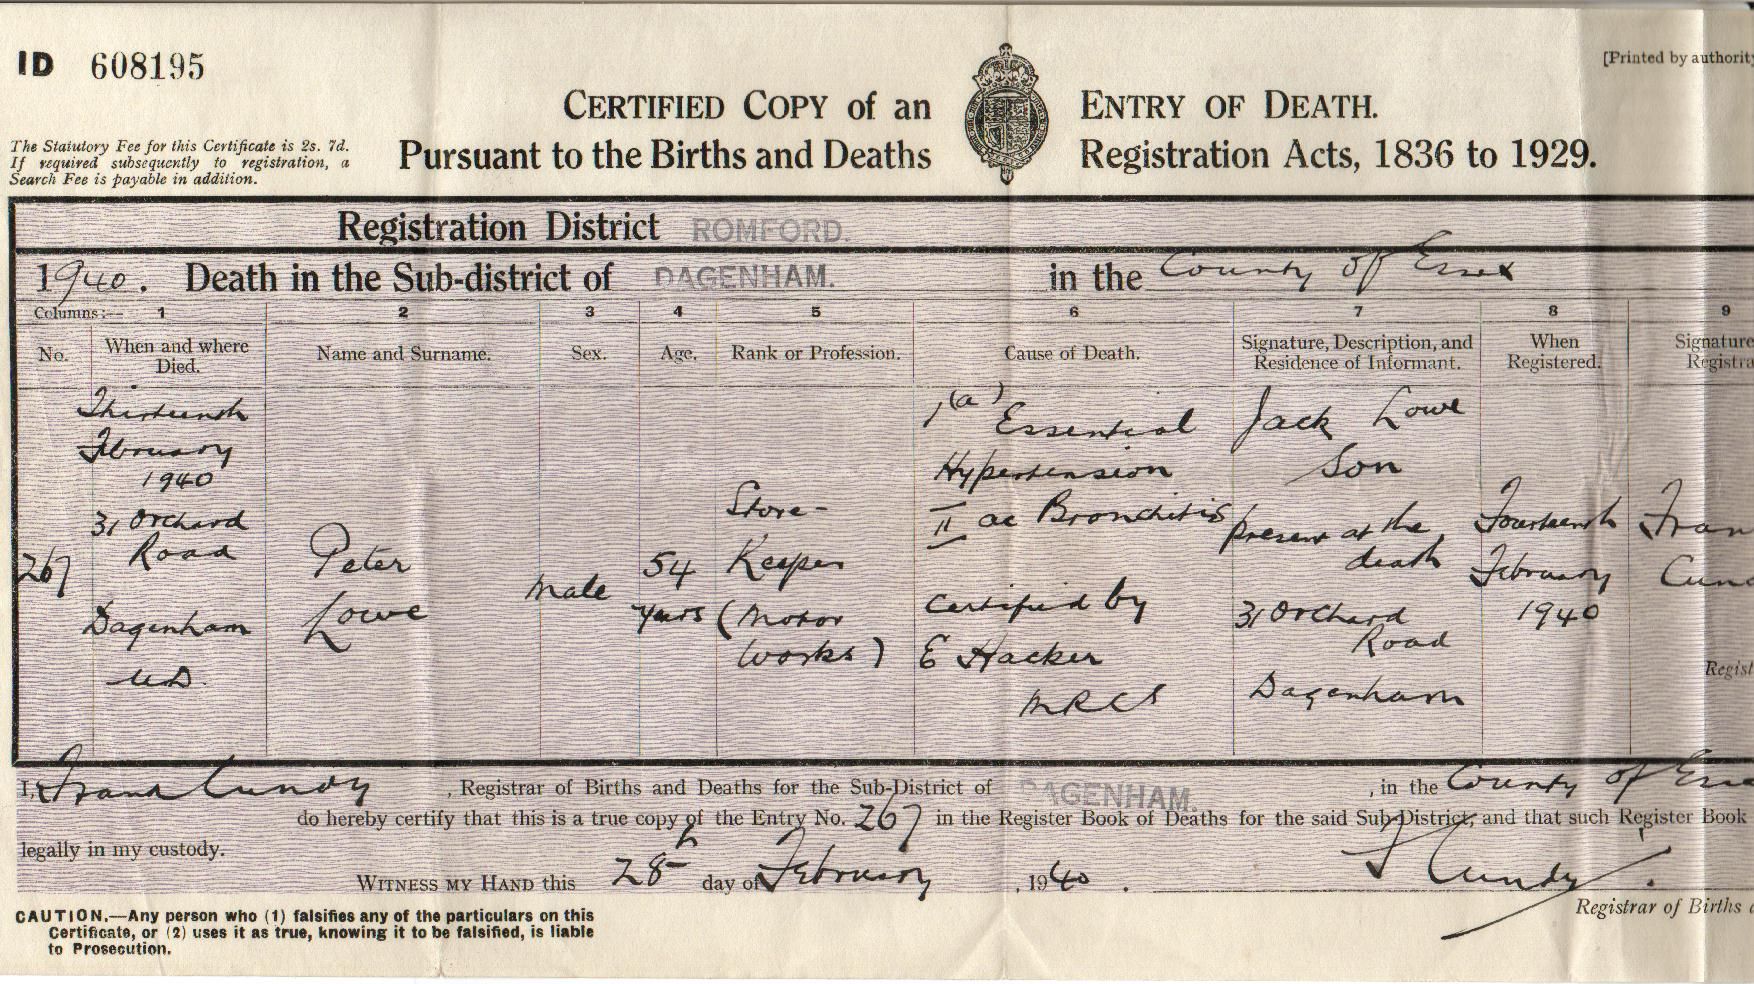 ID 608195
[Printed by authority
CERTIFIED COPY of an ENTRY OF DEATH.
Pursuant to the Births and Deaths Registration Acts, 1836 to 1929.
The Statutory Fee for this Certificate is 2s. 7d.
If required subsequently to registration, a
Search Fee is payable in addition.
Registration District ROMFORD.
1940. Death in the Sub-district of DAGENHAM. in the County of Essex
Columns:— 1 2 3 4 5 6 7 8 9
No.
When and where
Died.
Name and Surname.
Sex.
Age.
Rank or Profession.
Cause of Death.
Signature, Description, and
Residence of Informant.
When
Registered.
Signature
Registra
267
Thirteenth
February
1940
31 Orchard
Road
Dagenham
U.D.
Peter
Lowe
Male
54
years
Store-
Keeper
(Motor
Works)
1(a)
Essential
Hypertension
II ac Bronchitis
Certified by
E Hacker
MRCS
Jack Lowe
Son
present at the
death
31 Orchard
Road
Dagenham
Fourteenth
February
1940
Fran
Cun
Regist
I, Frank Cundy, Registrar of Births and Deaths for the Sub-District of DAGENHAM., in the County of Esse
do hereby certify that this is a true copy of the Entry No. 267 in the Register Book of Deaths for the said Sub-District, and that such Register Book
legally in my custody.
WITNESS MY HAND this 28th day of February, 1940.
F Cundy.
Registrar of Births a
CAUTION.—Any person who (1) falsifies any of the particulars on this
Certificate, or (2) uses it as true, knowing it to be falsified, is liable
to Prosecution.